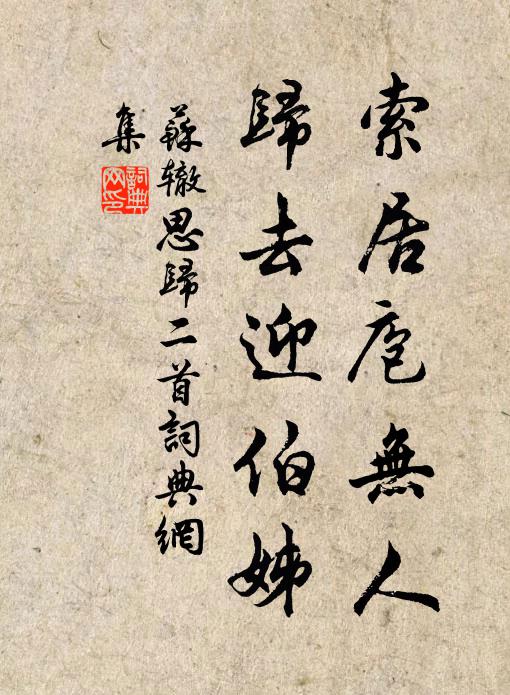 索居庖無人
歸去迎伯姊
蘇轍思歸二首詞典網
集
詞典
网印